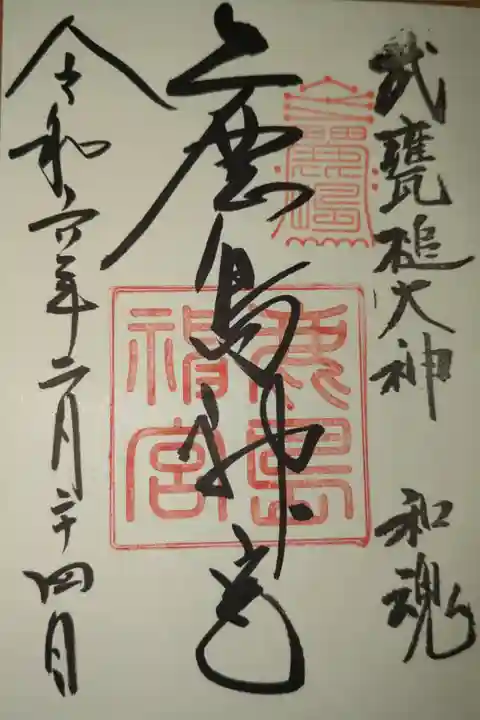 武甕槌大神 和魂
鹿島神宮
鹿島
神宮
令和六年二月二十四日